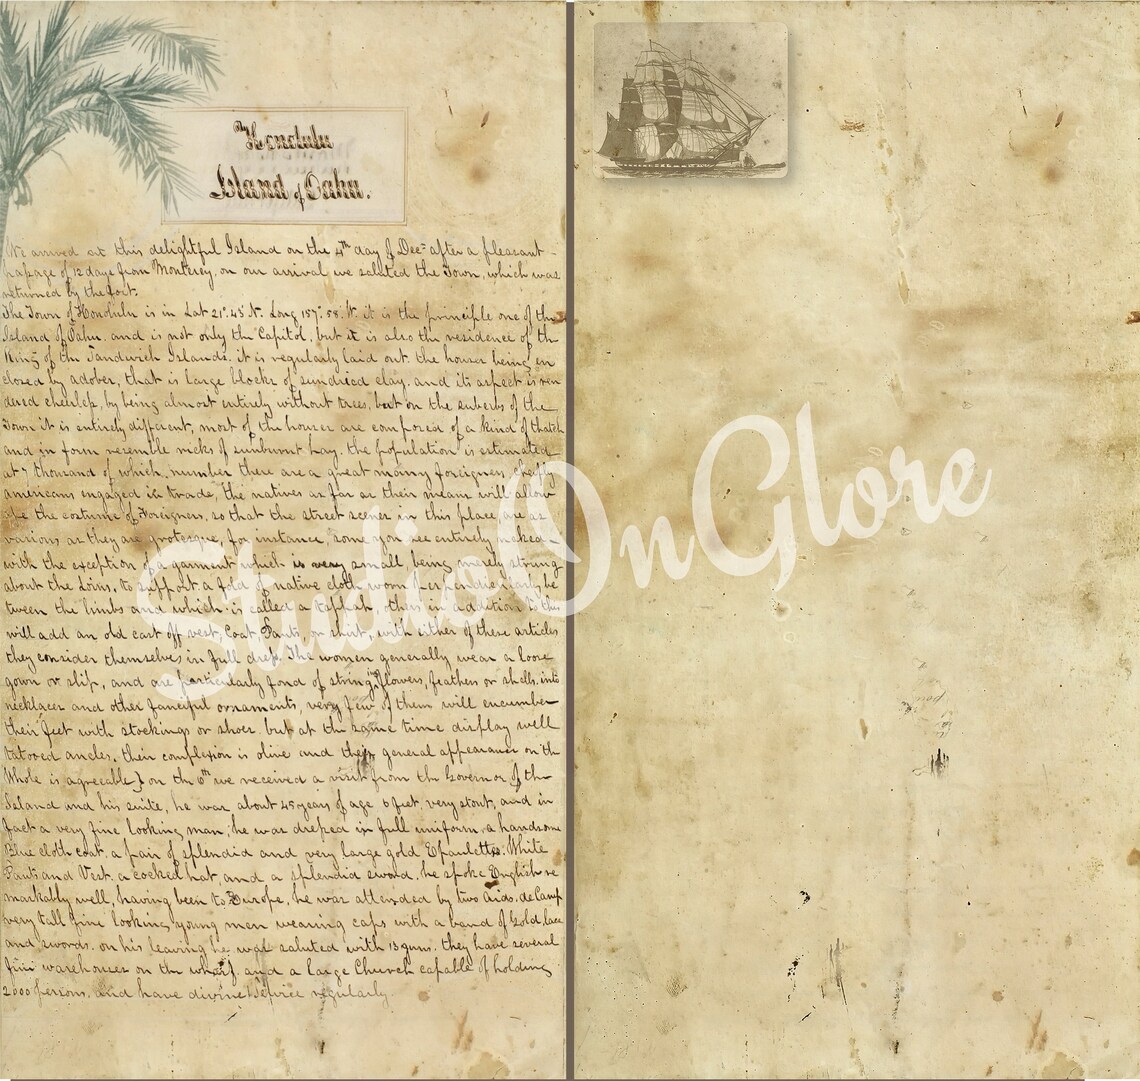 Honolulu
Island of Oahu.
We arrived at this delightful Island on the 4th day of Dec= after a pleasant
paſsage of 12 days from Monterey, on our arrival we saluted the Town, which was
returned by the Fort.
The Town of Honolulu is in Lat 21°. 43' N. Long 157°. 58' W. it is the principle one of the
Island of Oahu. and is not only the Capitol, but it is also the residence of the
King of the Sandwich Islands. it is regularly laid out. the houses being en
closed by adobes, that is large blocks of sundried clay. and its aspect is ren
dered cheerleſs, by being almost entirely without trees, but on the suburbs of the
Town it is entirely different, most of the houses are composed of a kind of thatch
and in form resemble ricks of sunburnt hay. the population is estimated
at 7 thousand of which number there are a great many foreigners chiefly
americans engaged in trade, the natives as far as their means will allow
the costume of Foreigners, so that the street scenes in this place are as
various as they are grotesque, for instance, some you see entirely naked
with the exception of a garment which is very small, being merely a string
about the Loins, to support a fold of native cloth worn perpendicularly be
tween the limbs and which is called a others in addition to this
will add an old cast off vest, Coat, Pants, or shirt, with either of these articles
they consider themselves in full dreſs. The women generally wear a loose
gown or slip, and are particularly fond of string flowers, feathers or shells into
necklaces and other fanciful ornaments, very few of them will encumber
their feet with stockings or shoes. but at the same time display well
tatooed ancles. their complexion is olive and their general appearance on the
Whole is agreeable} on the 6th we received a visit from the Governor of the
Island and his suite, he was about 45 years of age 6 feet, very stout, and in
fact a very fine looking man, he was dreſsed in full uniform a handsome
Blue cloth coat. a pair of splendid and very large gold Epauletts. White
Pants and Vest. a cocked hat, and a splendid sword. he spoke English re
markably well, having been to Europe, he was attended by two Aids. de Camp
very tall fine looking young men wearing caps with a band of Gold lace
and swords. on his leaving he was saluted with 13 guns. they have several
fine warehouses on the wharf. and a large Church capable of holding
2000 persons, and have divine Service regularly.
StudioOnGlore